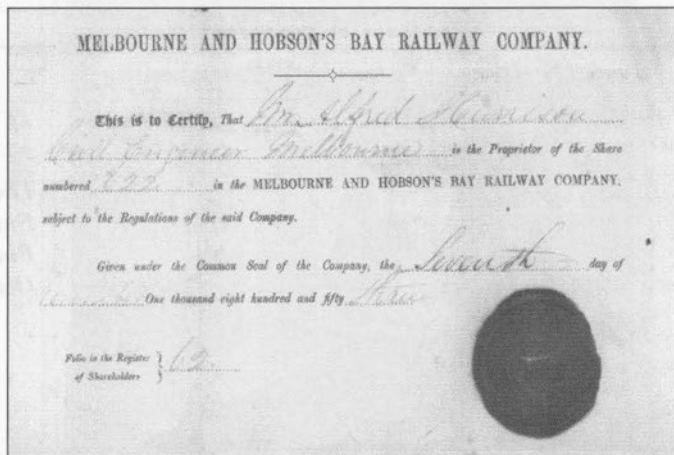 MELBOURNE AND HOBSON'S BAY RAILWAY COMPANY.
This is to Certify, That Wm. Alfred
Civil Engineer Melbourne is the Proprietor of the Share
numbered 822 in the MELBOURNE AND HOBSON'S BAY RAILWAY COMPANY,
subject to the Regulations of the said Company.
Given under the Common Seal of the Company, the Seventh day of
One thousand eight hundred and fifty three
Folio in the Register
of Shareholders } 62